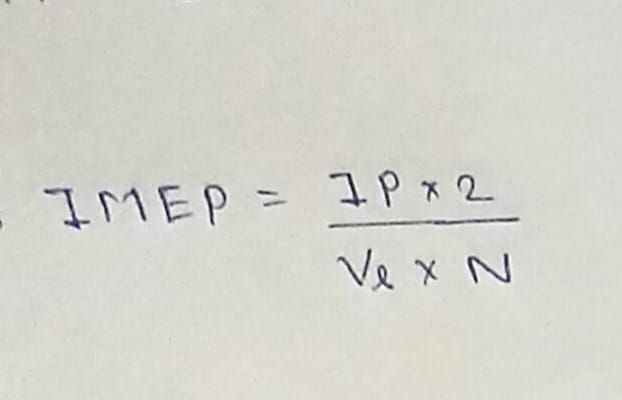 IMEP = IP × 2
Ve × N